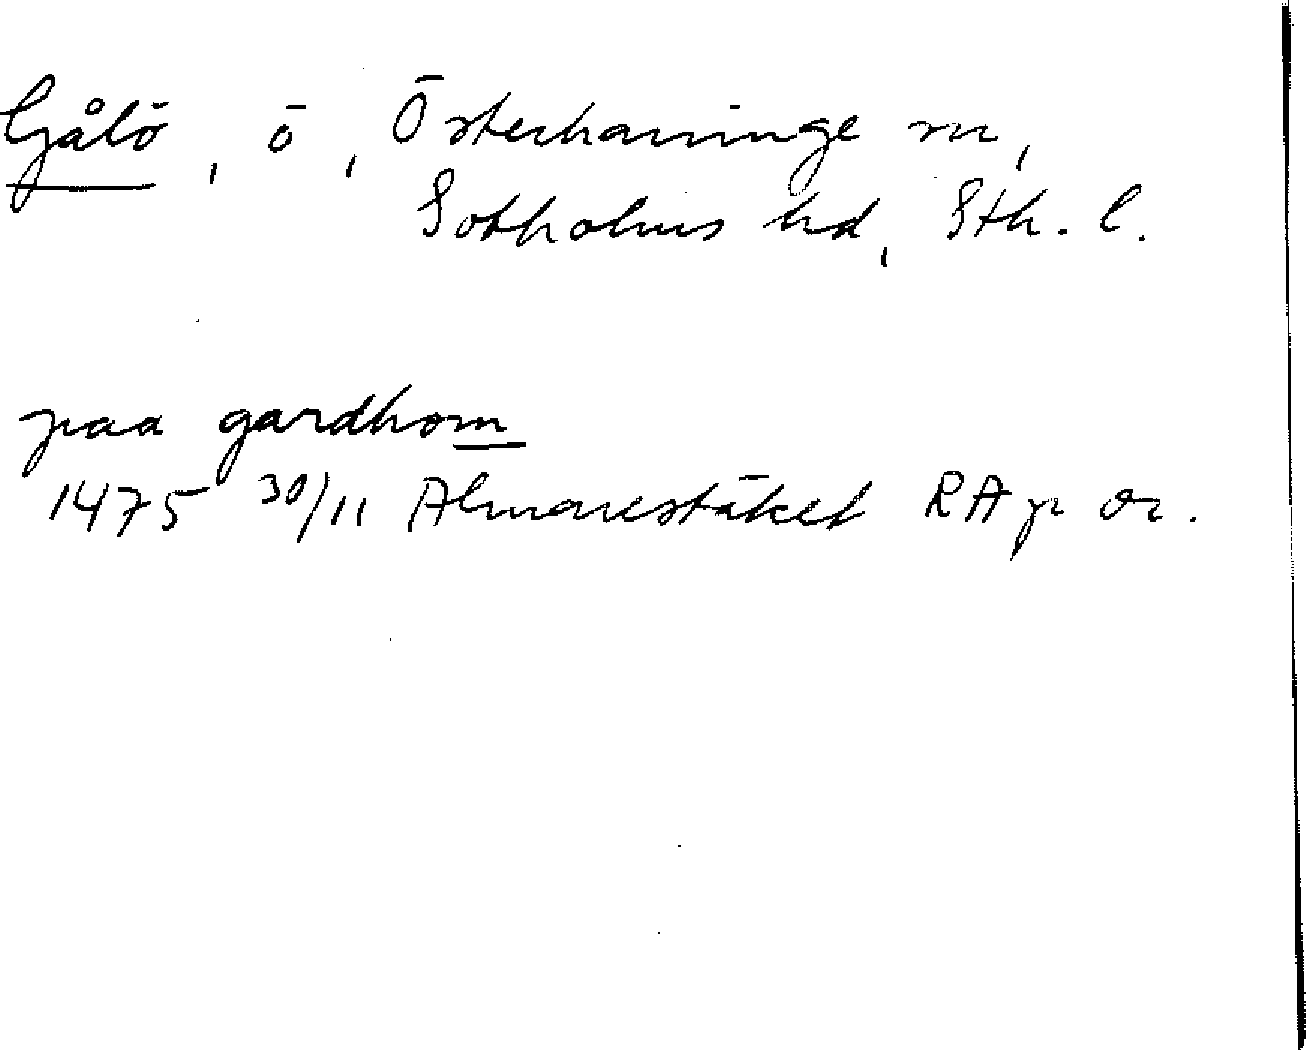 Gålö, ö, Österhaninge sn,
Sotholms hd, Sth. l.
paa gardhom
1475 30/11 Almarestäket RA p or.